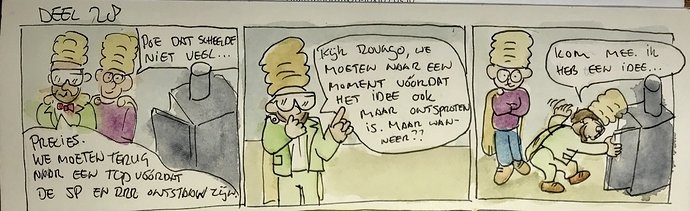 DEEL 28
POE DAT SCHEELDE
NIET VEEL...
PRECIES.
WE MOETEN TERUG
NAAR EEN TIJD VOORDAT
DE SP EN RRR ONTSTAAN ZIJN.
Kijk ROVAGO, WE
MOETEN NAAR EEN
MOMENT VÓÓRDAT
HET IDEE OOK
MAAR ONTSPROTEN
IS. MAAR WAN-
NEER??
KOM MEE. IK
HEB EEN IDEE...